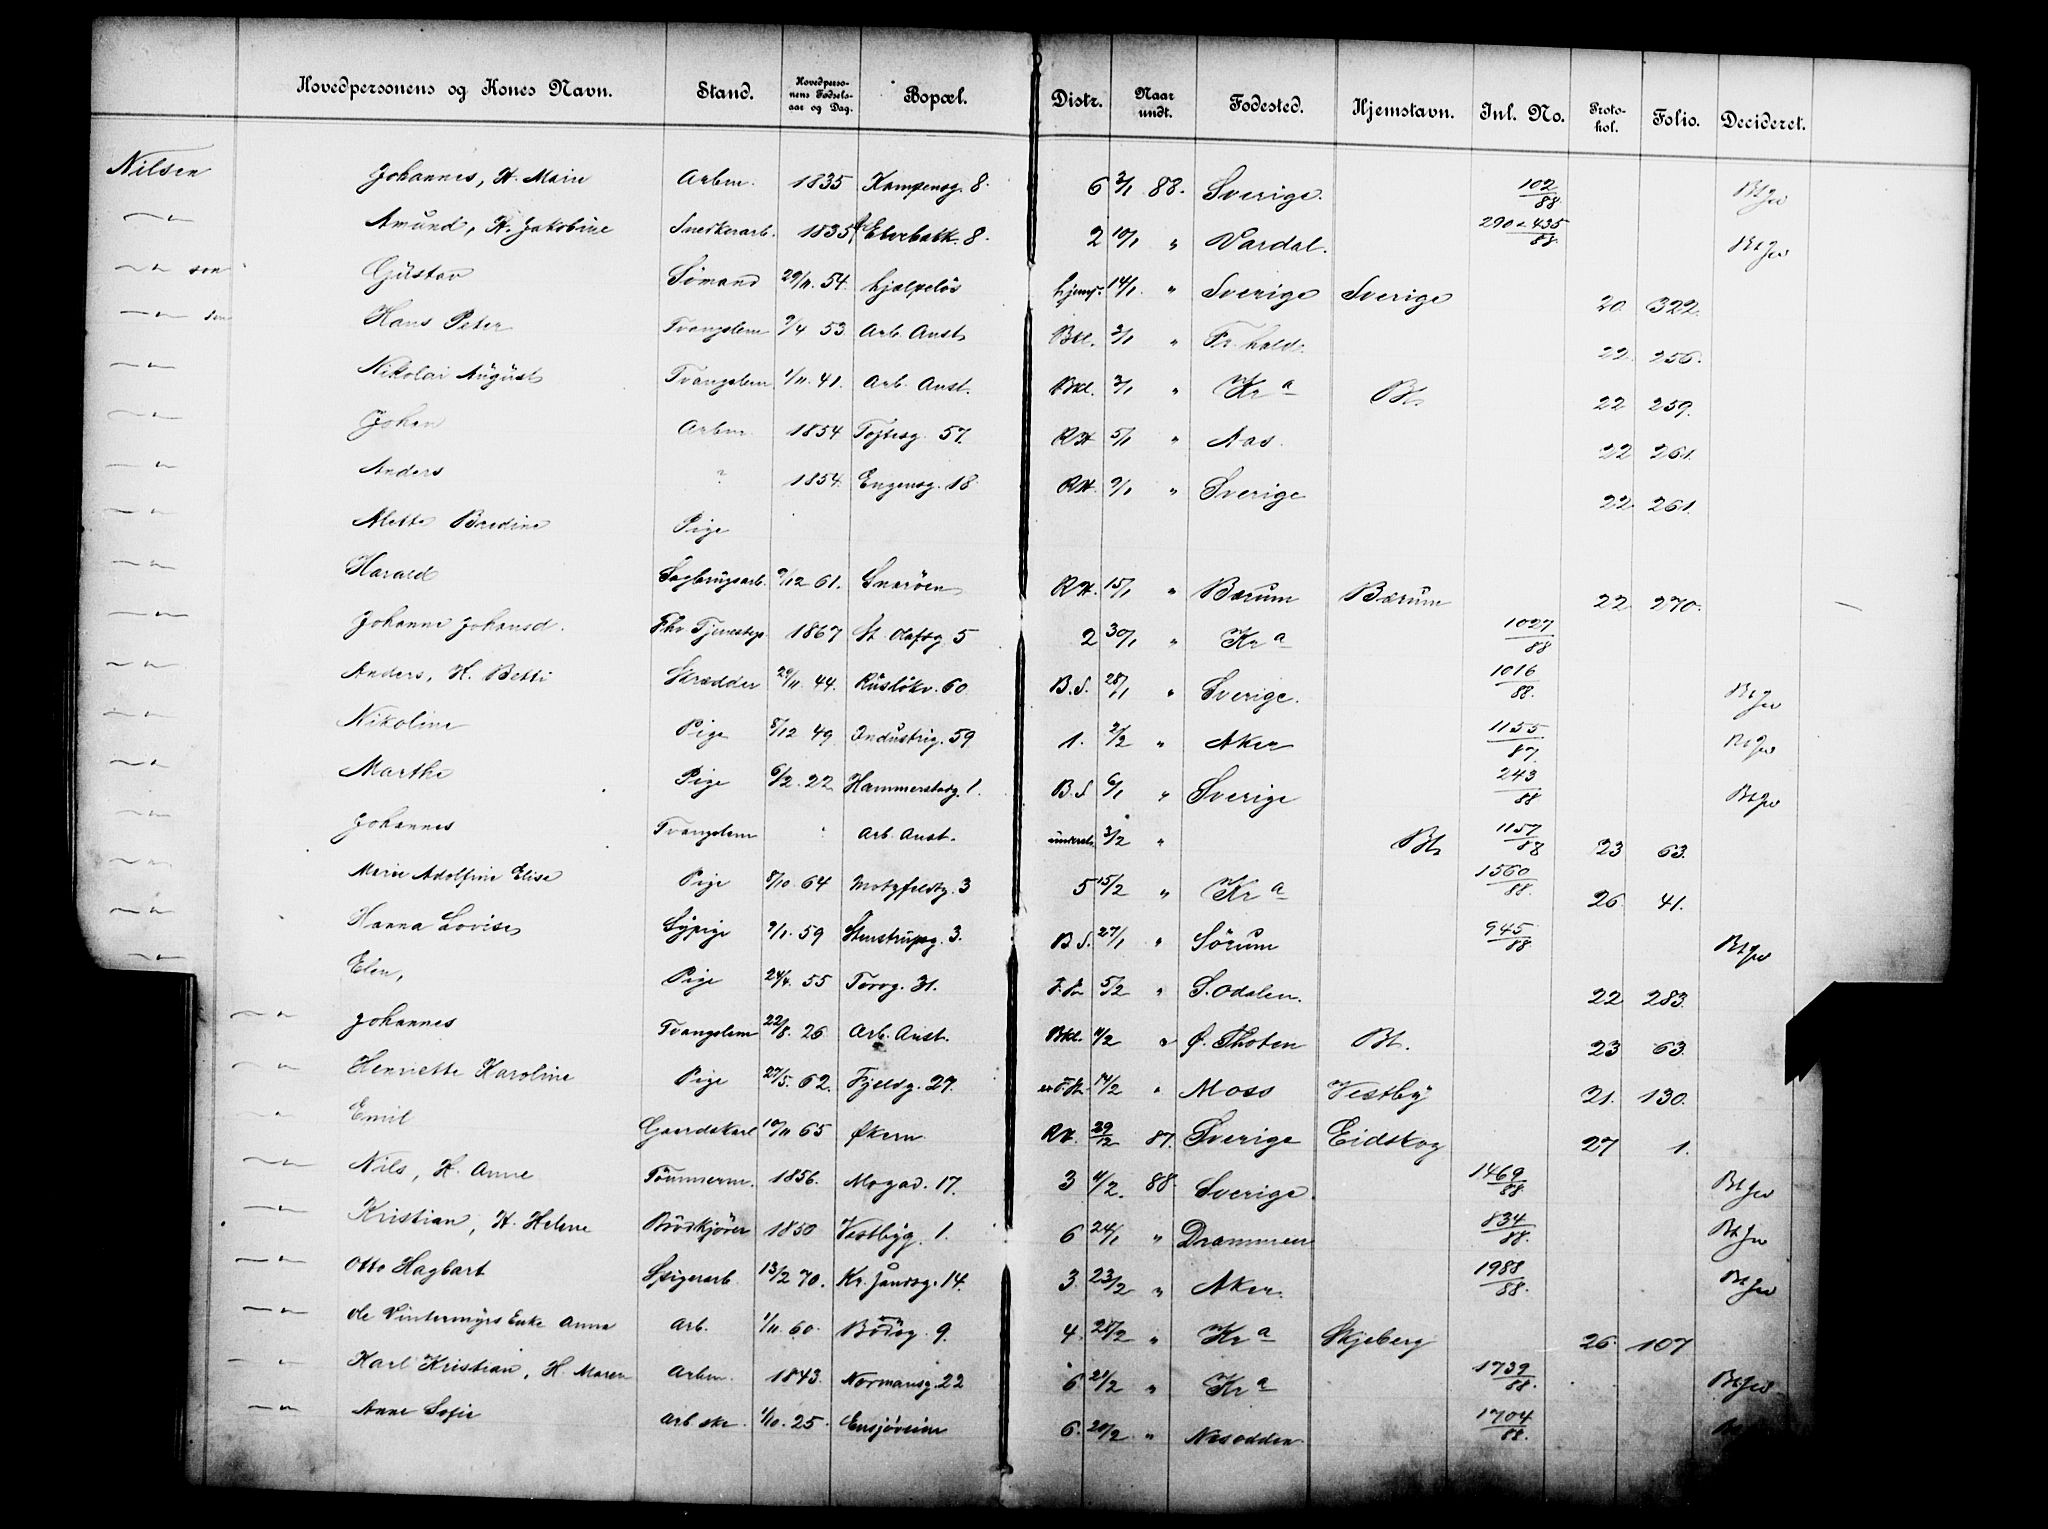 Hovedpersonens og Kones Navn. Stand. Hovedpersonens Fødselsaar og Dag. Bopæl. Distr. Naar undt. Fødested. Hjemstavn. Inl. No. Protokol. Folio. Decideret.
Nilsen Johannes, H. Marie Arbm. 1835 Kampensg. 8. 6 2/1 88. Sverige. 102/88 BtJw
—"— Amund, H. Jakobine Snedkerarb. 1835 Elvebakk. 8. 2 10/1 " Vardal. 290 435/88 BtJw
—"— sen Gustav Sømand 29/11. 54. hjælpeløs hjemf. 14/1 " Sverige Sverige 20. 322.
—"— sen Hans Peter Tvangslem 7/4 53 Arb. Anst. Bkl. 3/1 " Fr.hald. 22. 256.
—"— Nikolai August Tvangslem 1/11. 41. Arb. Anst. Bkl. 3/1 " Kra Bt. 22 259.
—"— Johan Arbm. 1854 Toftesg. 57. RH 5/1 " Aas. 22 261.
—"— Anders " 1854. Engensg. 18. RH. 9/1 " Sverige 22 261.
—"— Mette Bredine Pige
—"— Harald Sagbrugsarb. 9/12 61. Snarøen RH. 15/1 " Bærum Bærum 22 270.
—"— Johanne Johansd. Fhv Tjenestep. 1867 St. Olafsg. 5 2 30/1 " Kra 1027/88
—"— Anders, H. Betti Skrædder 29/11. 44. Rusløkv. 60. B.S. 28/1 " Sverige. 1016/88. BtJw
—"— Nikoline Pige 8/12 49. Industrig. 59 1. 2/2 " Aker 1155/87. BtJw
—"— Marthe Pige 6/2. 22. Hammersborg. 1. B.S 6/1 " Sverige 243/88 BtJw
—"— Johannes Tvangslem " Arb. Anst. 3/2 " Bt. 1157/88 23 63.
—"— Marie Adolfine Elise Pige 8/10 64 Motzfeldtg. 3 5 15/2 " Kra 1560/88. 26 41.
—"— Hanna Lovise Sypige 9/1. 59 Stenstrupsg. 3. B.S. 27/1 " Sørum 945/88 BtJw
—"— Elen, Pige 24/4. 55 Torvg. 31. 5/2 " S. Odalen. 22 283.
—"— Johannes Tvangslem 22/8. 26. Arb. Anst. Bkl. 11/2 " Ø. Thoten Bt. 23 63.
—"— Henriette Karoline Pige 27/5. 62. Fjeldg. 27. 14/2 " Moss Vestby 21. 130.
—"— Emil Gaardskarl 10/11 65 Økern. RH. 29/2 87. Sverige Eidskog 27 1.
—"— Nils, H. Anne Tømmerm. 1856. Mogad. 17. 3 11/2. 88. Sverige. 1469/88. BtJw
—"— Kristian, H. Helene Brødkjører 1850 Vestbyg. 1. 6 24/1 " Drammen 834/88. BtJw
—"— Otto Hagbart Spigerarb. 13/2 70. 14. 3. 23/2 " Aker. 1988/88. BtJw
—"— de Vintermyrs Enke Anna Arb. 1/11. 60. Bødög. 9. 4. 28/2 " Kra Skjeberg 26. 107
—"— Karl Kristian, H. Maren Arbm. 1843. Normansg. 22 6. 21/2 " Kra 1739/88. BtJw
—"— Anne Sofie Arb ske. 1/10. 25. Ensjøveien 6. 20/2 " Nesodden. 1704/88.